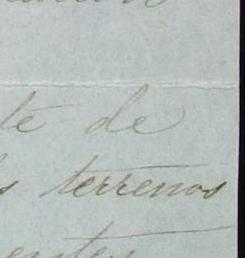 te de
s terrenos
entes